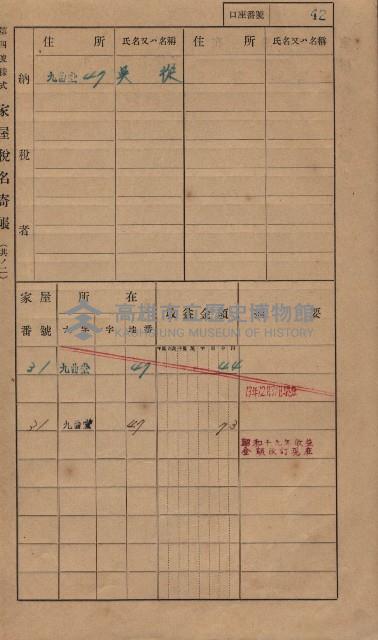 口座番號 42
第四號樣式
家屋稅名寄帳
(共ノ二)
納稅者
住所 氏名又ハ名稱 住所 氏名又ハ名稱
九曲堂 47 吳
家屋番號 所在 收益金額 摘要
大字 字 地番
31 九曲堂 47 44
31 九曲堂 47 73
昭和十九年收益
金額改訂現在
高雄市立歷史博物館
KAOHSIUNG MUSEUM OF HISTORY